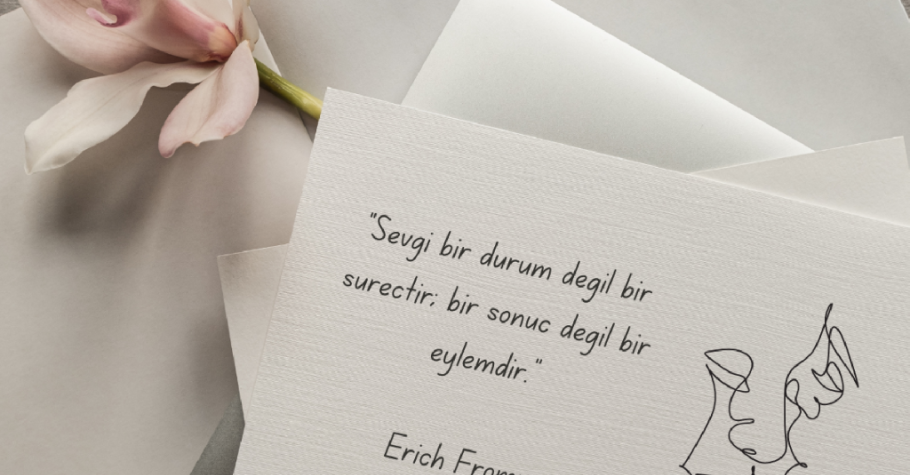 "Sevgi bir durum degil bir
surectir; bir sonuc degil bir
eylemdir."
Erich